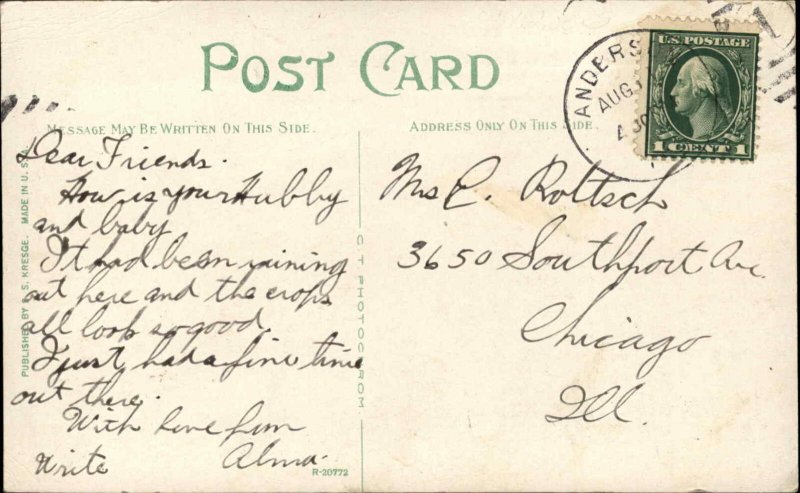 POST CARD
MESSAGE MAY BE WRITTEN ON THIS SIDE.
ADDRESS ONLY ON THIS SIDE.
Dear Friends.
How is your Hubby
and baby
It had been raining
out here and the crops
all look so good.
I just had a fine time
out there.
With love from
Write Alma.
Mrs E. Rottsch
3650 Southport Ave
Chicago
Ill.
ANDERS
AUG
U.S. POSTAGE
1 CENT 1
PUBLISHED BY S. S. KRESGE. MADE IN U. S. A.
C T PHOTOCHROM
R-20772